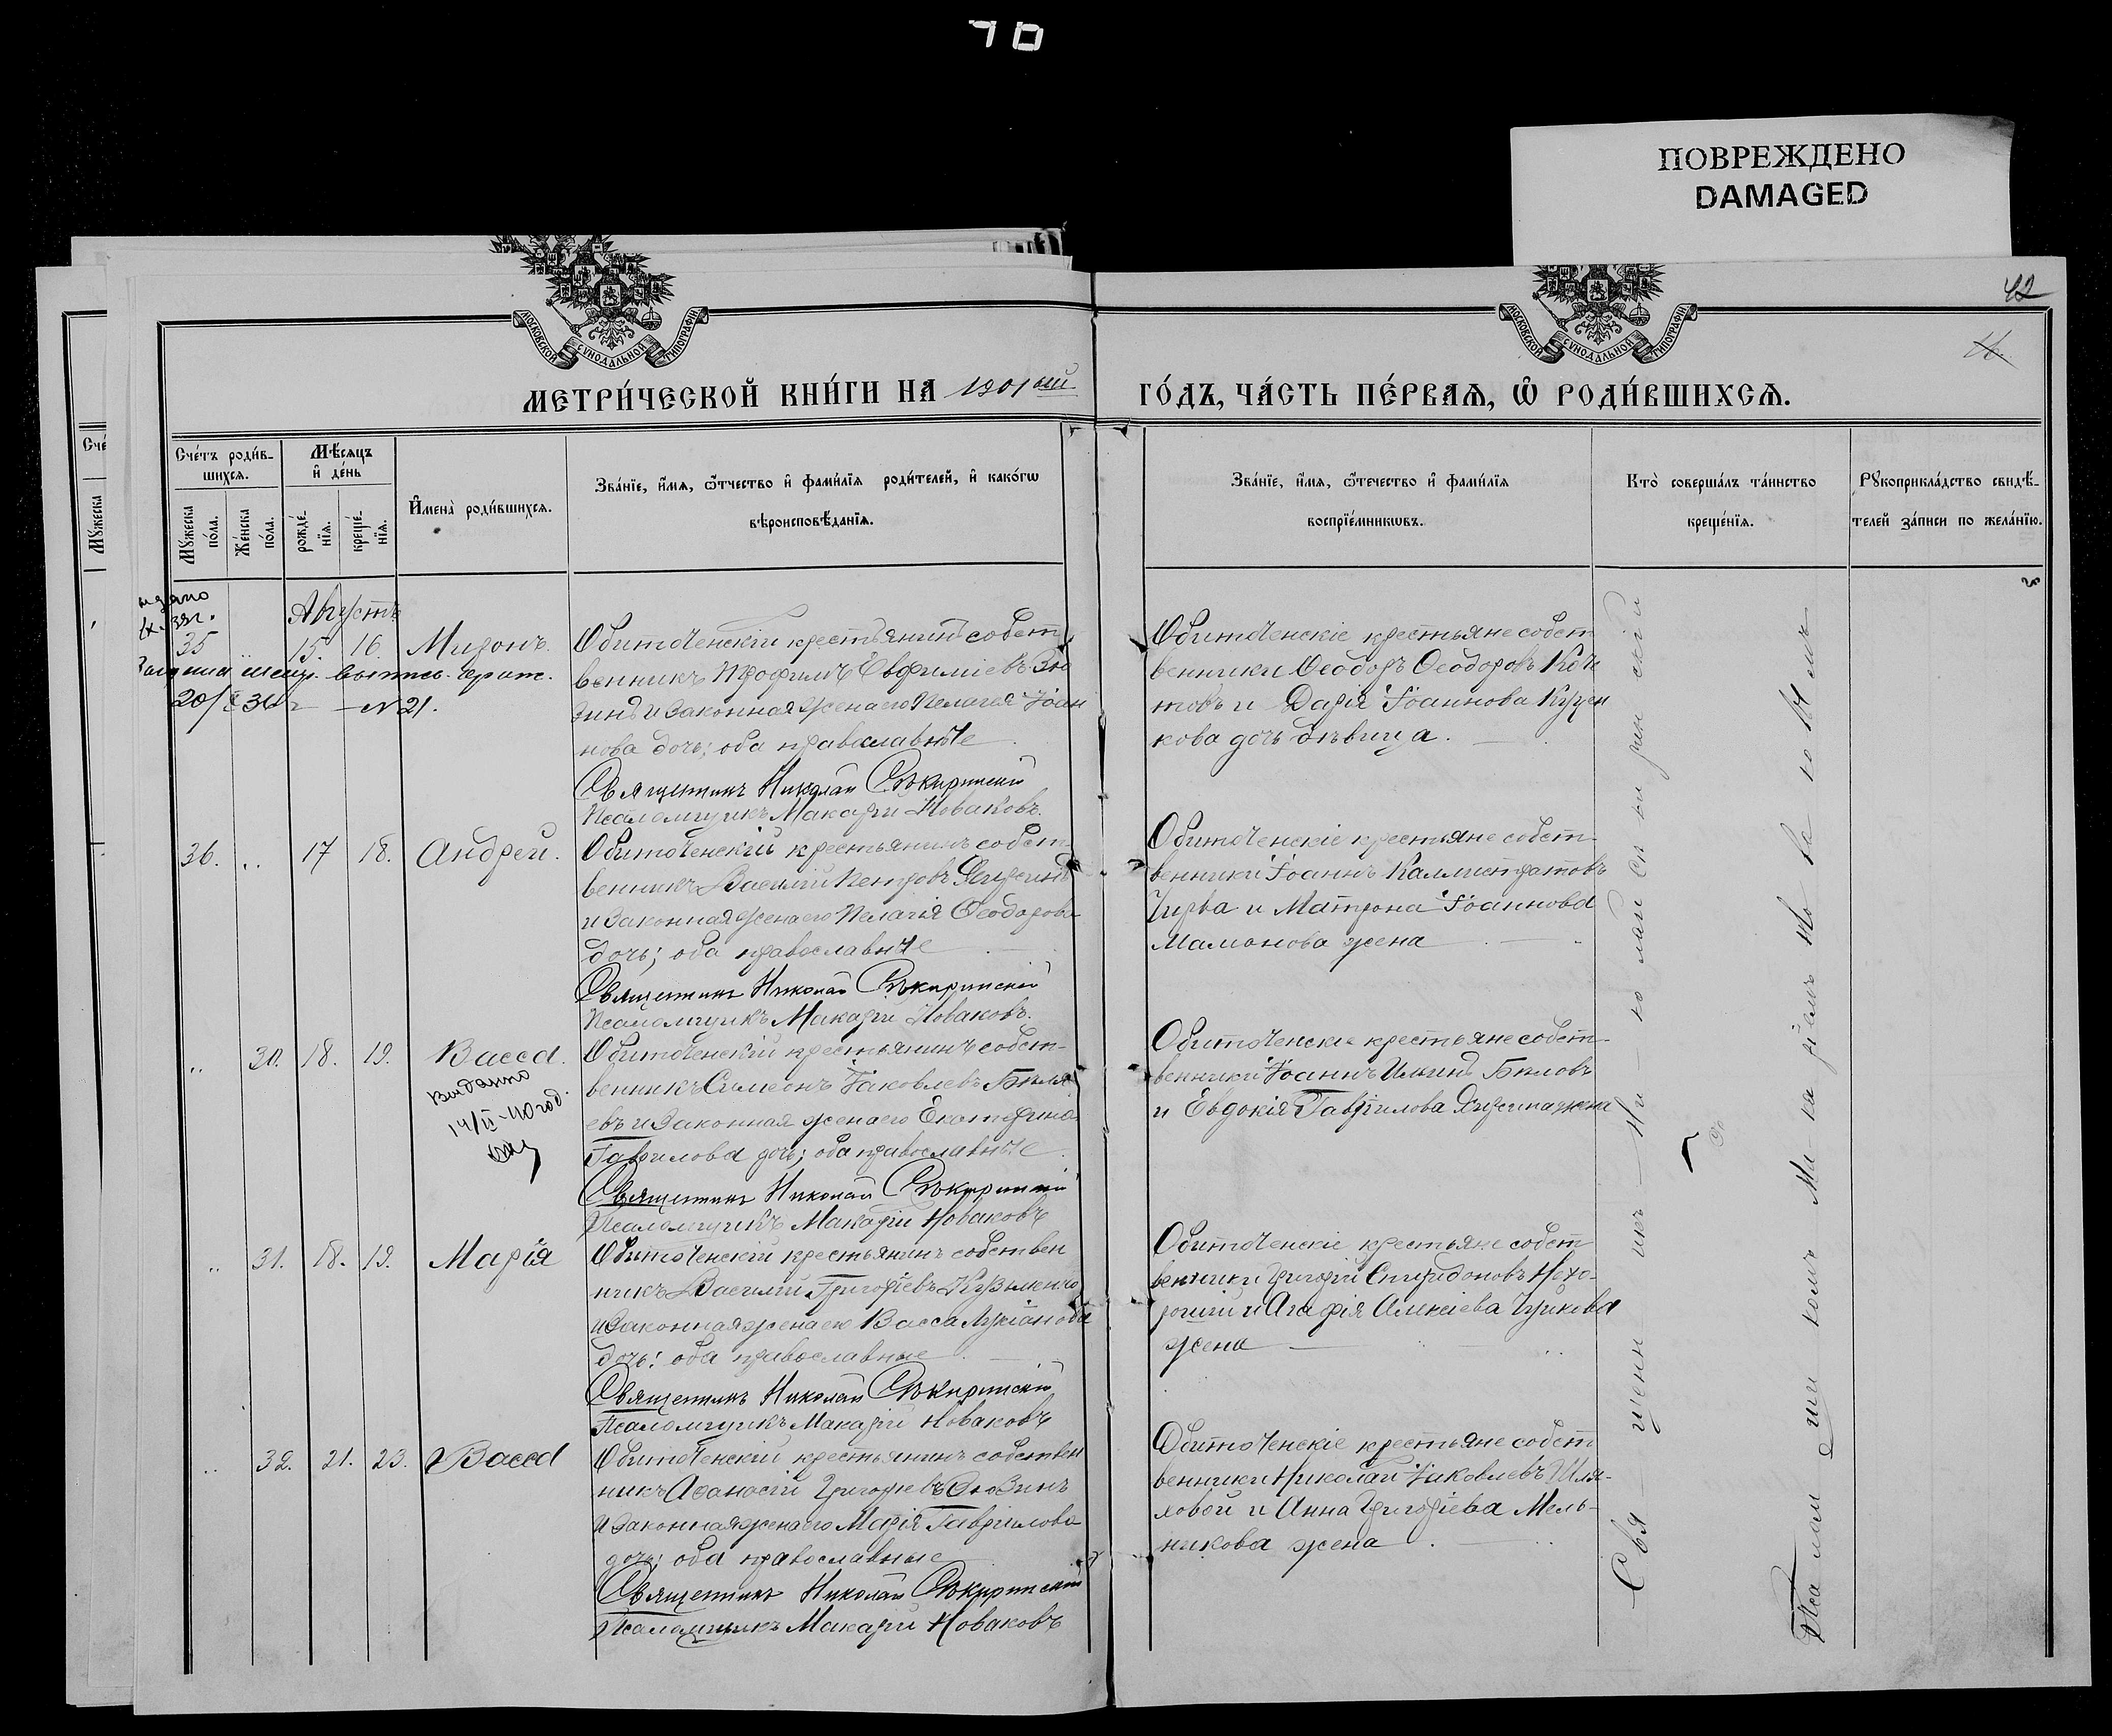 70
ПОВРЕЖДЕНО
DAMAGED
42
МОСКОВСКОЙ СѴНОДАЛЬНОЙ ТИПОГРАФІИ
МОСКОВСКОЙ СѴНОДАЛЬНОЙ ТИПОГРАФІИ
МЕТРИ́ЧЕСКОЙ КНИ́ГИ НА 1901 ый
ГО́ДЪ, ЧА́СТЬ ПЕ́РВАѦ, Ѽ РОДИ́ВШИХСѦ.
Сче́тъ роди́в-
шихсѧ.
Мꙋ́жеска по́ла.
Же́нска по́ла.
Мѣ́сѧцъ
и҆ де́нь
рожде́-нїѧ.
креще́-нїѧ.
И҆мена̀ роди́вшихсѧ.
Зва́нїе, и҆́мѧ, ѻ҆́тчество и҆ фами́лїѧ роди́телей, и҆ како́гѡ
вѣроисповѣ́данїѧ.
Зва́нїе, и҆́мѧ, ѻ҆́течество и҆ фами́лїѧ
воспрїе́мникѡвъ.
Кто̀ соверша́лъ та́инство
креще́нїѧ.
Рꙋкоприкла́дство свидѣ́-
телей за́писи по жела́нїю.
Августъ
35 15. 16. Миронъ.
Обиточенскій крестьянинъ собст
венникъ Трофимъ Евфиміевъ Зю
зинъ и законная жена его Пелагія Іоан
нова дочь; оба православные
Священникъ Николай
Псаломщикъ Макарій Новаковъ.
Обиточенскіе крестьяне собст
венники Ѳеодоръ Ѳеодоровъ
и Дарія Іоаннова
кова дочь дѣвица.
20/ 21.
36. .. 17 18. Андрей.
Обиточенскій крестьянинъ собст
венникъ Василій Петровъ
и законная жена его Пелагія Ѳеодорова
дочь; оба православные
Священникъ Николай
Псаломщикъ Макарій Новаковъ.
Обиточенскіе крестьяне собст-
венники Іоаннъ Каллистратовъ
Чирва и Матрона Іоаннова
Мамонова жена
.. 30. 18. 19. Васса.
Выданно
14/II-40 год.
Обиточенскій крестьянинъ собст-
венникъ Симеонъ Іаковлевъ Бѣля
евъ и законная жена его Екатерина
Гаврилова дочь; оба православные
Священникъ Николай
Псаломщикъ Макарій Новаковъ
Обиточенскіе крестьяне собст-
венники Іоаннъ Ильинъ Бѣловъ
и Евдокія Гаврілова жена
.. 31. 18. 19. Марія
Обиточенскій крестьянинъ собствен
никъ Василій Григоріевъ Кузьменко
и законная жена его Васса Лукіанова
дочь: оба православные
Священникъ Николай
Псаломщикъ Макарій Новаковъ
Обиточенскіе крестьяне собст
венники Григорій Спиридоновъ Нехо-
рошій и Агафія Алексіева Чуйкова
жена
.. 32. 21. 23. Васса
Обиточенскій крестьянинъ собствен
никъ Аѳанасій Григорьевъ Зюзинъ
и законная жена его Марія Гаврилова
дочь; оба православные
Священникъ Николай
Псаломщикъ Макарій Новаковъ
Обиточенскіе крестьяне собст
венники Николай Іаковлевъ Шля-
ховой и Анна Григоріева Мель-
никова жена
Свя – щенн икъ – Ни – ко лай
Пса лом щи комъ Ма – ка ріемъ Но ва ко вымъ